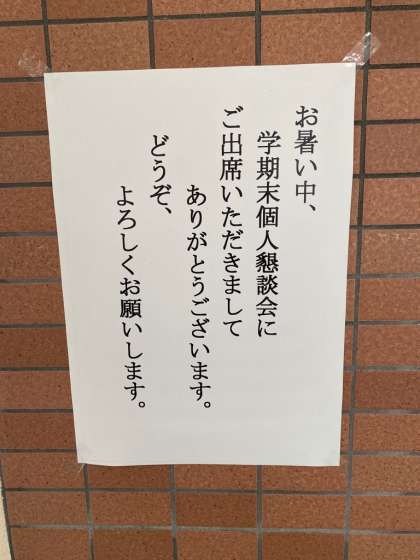 お暑い中、
学期末個人懇談会に
ご出席いただきまして
ありがとうございます。
どうぞ、
よろしくお願いします。